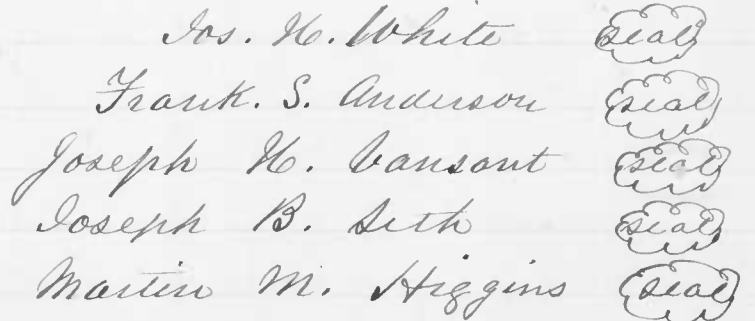 Jos. H. White seal
Frank. S. Anderson seal
Joseph H. Vansant seal
Joseph B. Seth seal
Martin M. Higgins seal